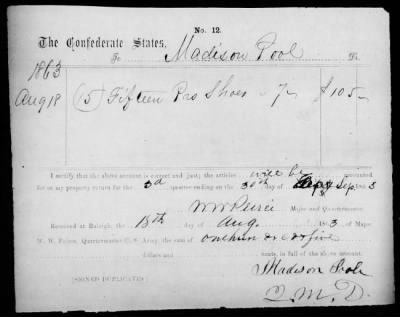 No. 12.
The Confederate States,
To Madison Pool Dr.
1863
Aug 18 (15) Fifteen Prs Shoes 7- $105-
I certify that the above account is correct and just; the articles will be accounted
for on my property return for the 3d quarter ending on the 30th day of Sep. 3
W W Peirce Major and Quartermaster.
Received at Raleigh, the 18th day of Aug. 1863, of Major
W. W. Peirce, Quartermaster C. S. Army, the sum of one hun dred & five
dollars and cents, in full of the above account.
Madison Pool
[SIGNED DUPLICATES.] Q. M. D.